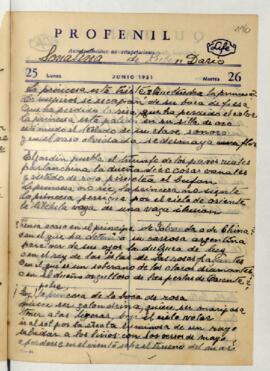 1190
PROFENIL
Life
Sonatina de Rubén Darío
25 Lunes JUNIO 1951 Martes 26
La princesa está triste ¿Qué tendrá la princesa
los suspiros se escapan de su boca de fresa
Que ha perdido la risa, que ha perdido el color
La princesa está pálida en su silla de oro
está mudo el teclado de su clave sonoro
y en un vaso olvidada se desmaya una flor
El jardín puebla el triunfo de los pavos reales
parlanchina la dueña dice cosas banales
y vestido de rojo piruetea el bufón
La princesa no ríe la princesa no siente
La princesa persigue por el cielo de oriente
la libélula vaga de una vaga ilusión
Piensa acaso en el príncipe de Golconda o de China
en el que ha detenido su carroza argentina
para ver de sus ojos la dulzura de luz
o en el rey de las islas de las rosas fragantes
en el que es soberano de los claros diamantes
o en el dueño orgulloso de las perlas de Ormuz
¡Ay! la pobre princesa de la boca de rosa
quiere ser golondrina, quiere ser mariposa
tener alas ligeras, bajo el cielo volar
ir al sol por la escala luminosa de un rayo
saludar a los lirios con los versos de mayo
o perderse en el viento sobre el trueno del mar